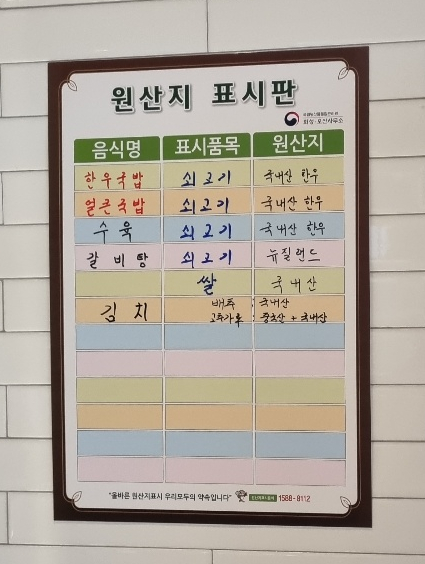 원산지 표시판
국립농산물품질관리원
화성·오산사무소
음식명 표시품목 원산지
한우국밥 쇠고기 국내산 한우
얼큰국밥 쇠고기 국내산 한우
수육 쇠고기 국내산 한우
갈비탕 쇠고기 뉴질랜드
쌀 국내산
김치 배추 : 국내산
고추가루 : 중국산 + 국내산
"올바른 원산지표시 우리모두의 약속입니다" 1588-8112